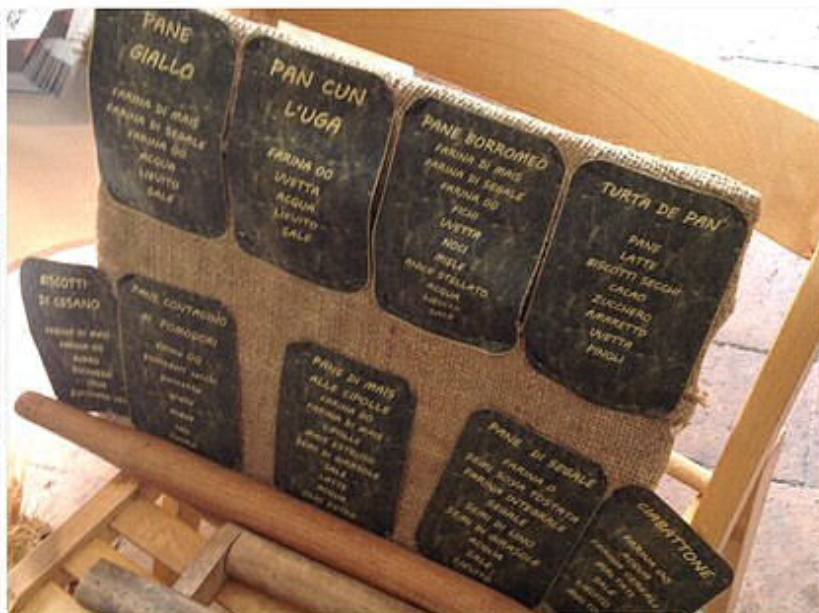 PANE
GIALLO
FARINA DI MAIS
FARINA DI SEGALE
FARINA 00
ACQUA
LIEVITO
SALE
PAN CUN
L'UGA
FARINA 00
UVETTA
ACQUA
LIEVITO
SALE
PANE BORROMEO
FARINA DI MAIS
FARINA DI SEGALE
FARINA 00
FICHI
UVETTA
NOCI
MIELE
ANICE STELLATO
ACQUA
LIEVITO
SALE
TURTA DE PAN
PANE
LATTE
BISCOTTI SECCHI
CACAO
ZUCCHERO
AMARETTO
UVETTA
PINOLI
BISCOTTI
DI CESANO
FARINA DI MAIS
FARINA 00
BURRO
ZUCCHERO
UOVA
PANE CONTADINO
AI POMODORI
FARINA 00
pomodori secchi
acqua
PANE DI MAIS
ALLE CIPOLLE
FARINA 00
FARINA DI MAIS
CIPOLLE
MAIS ESTRUSO
SEMI DI GIRASOLE
SALE
LATTE
ACQUA
PANE DI SEGALE
FARINA 0
SEMI SOYA TOSTATA
FARINA INTEGRALE
SEGALE
SEMI DI LINO
SEMI DI GIRASOLE
ACQUA
SALE
LIEVITO
CIABATTONE
FARINA 00
ACQUA
SALE
LIEVITO